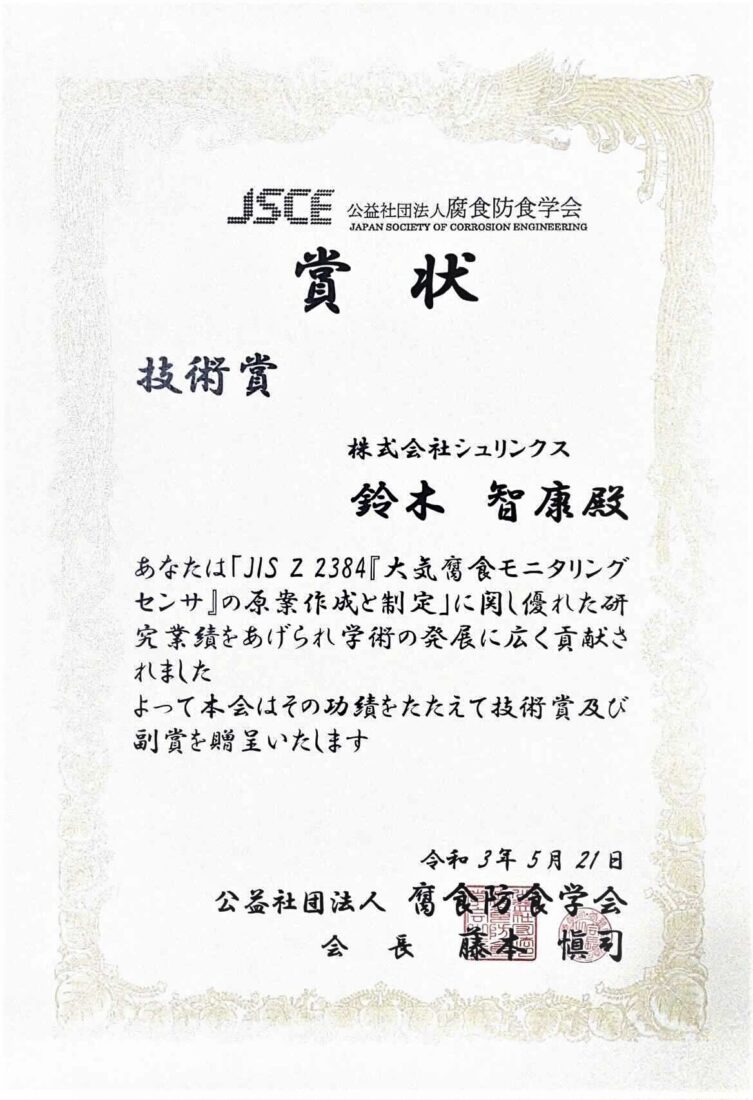 JSCE 公益社団法人腐食防食学会
JAPAN SOCIETY OF CORROSION ENGINEERING
賞 状
技術賞
株式会社シュリンクス
鈴木 智康殿
あなたは「JIS Z 2384『大気腐食モニタリング
センサ』の原案作成と制定」に関し優れた研
究業績をあげられ学術の発展に広く貢献さ
れました
よって本会はその功績をたたえて技術賞及び
副賞を贈呈いたします
令和 3年 5月 21日
公益社団法人 腐食防食学会
会 長 藤本 愼司